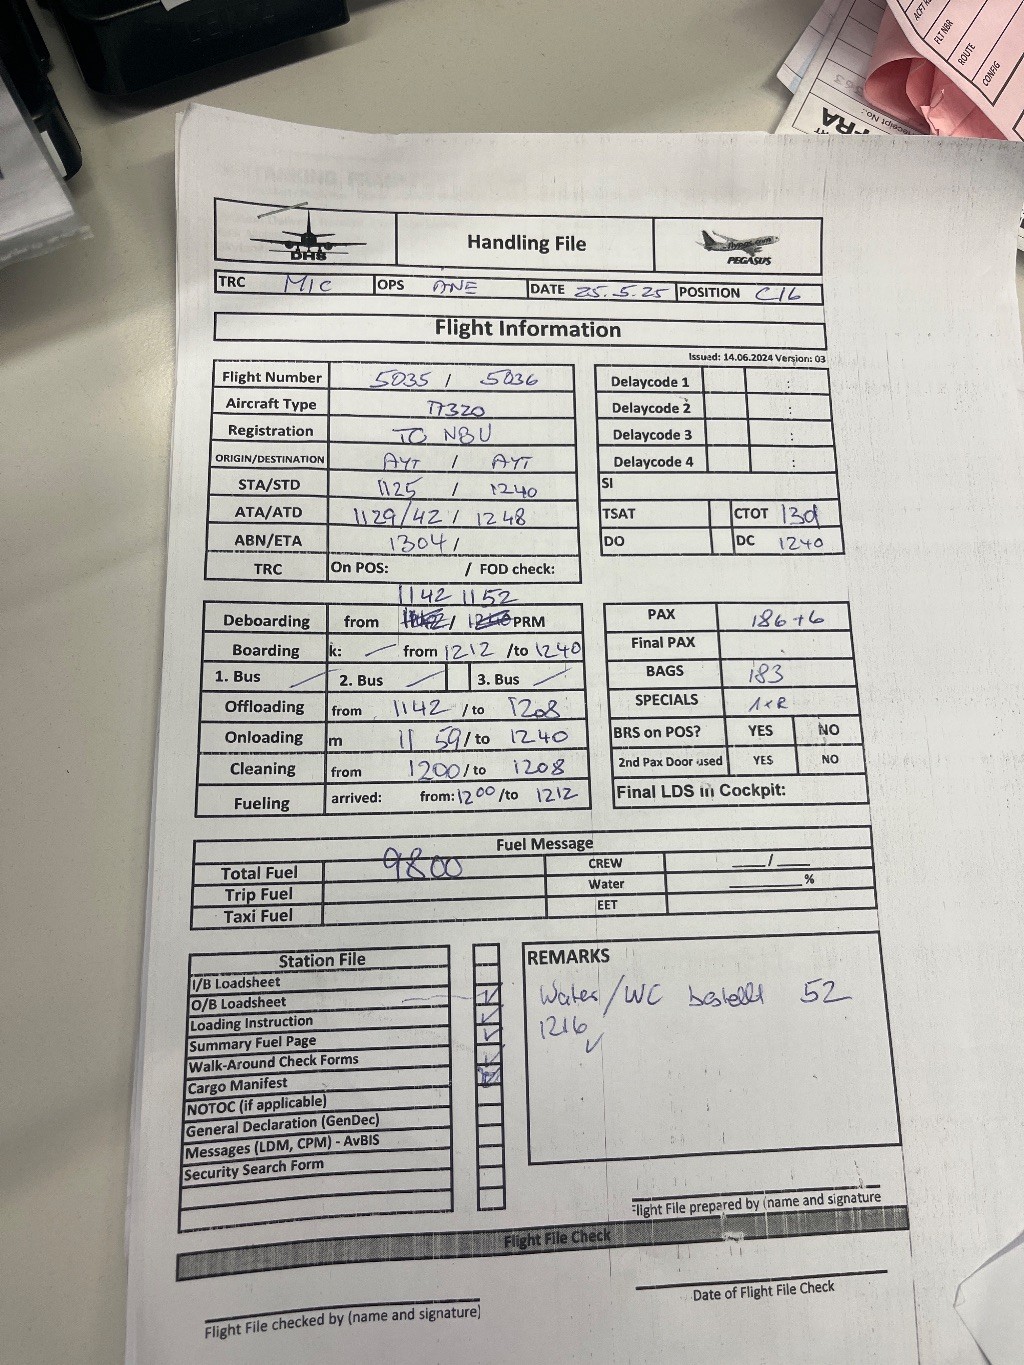 ACFT R
FLT NBR
ROUTE
CONFIG
Receipt No.:
DHS
Handling File
flypgs.com
PEGASUS
TRC MIC OPS ANE DATE 25.5.25 POSITION C16
Flight Information
Issued: 14.06.2024 Version: 03
Flight Number 5035 / 5036
Aircraft Type A320
Registration TC NBU
ORIGIN/DESTINATION AYT / AYT
STA/STD 1125 / 1240
ATA/ATD 1129/42 / 1248
ABN/ETA 1304 /
TRC On POS: / FOD check:
Delaycode 1 :
Delaycode 2 :
Delaycode 3 :
Delaycode 4 :
SI
TSAT CTOT
DO DC 1240
1142 1152
Deboarding from / PRM
Boarding k: from 1212 /to 1240
1. Bus 2. Bus 3. Bus
Offloading from 1142 /to 1208
Onloading m 11 59/to 1240
Cleaning from 1200/to 1208
Fueling arrived: from: 1200 /to 1212
PAX 186+6
Final PAX
BAGS 183
SPECIALS
BRS on POS? YES NO
2nd Pax Door used YES NO
Final LDS in Cockpit:
Fuel Message
Total Fuel 9800 CREW ___/___
Trip Fuel Water ______%
Taxi Fuel EET
Station File
I/B Loadsheet
O/B Loadsheet
Loading Instruction
Summary Fuel Page
Walk-Around Check Forms
Cargo Manifest
NOTOC (if applicable)
General Declaration (GenDec)
Messages (LDM, CPM) - AvBIS
Security Search Form
REMARKS
Water/WC bestellt 52
1216
Flight File prepared by (name and signature
Flight File Check
Flight File checked by (name and signature)
Date of Flight File Check